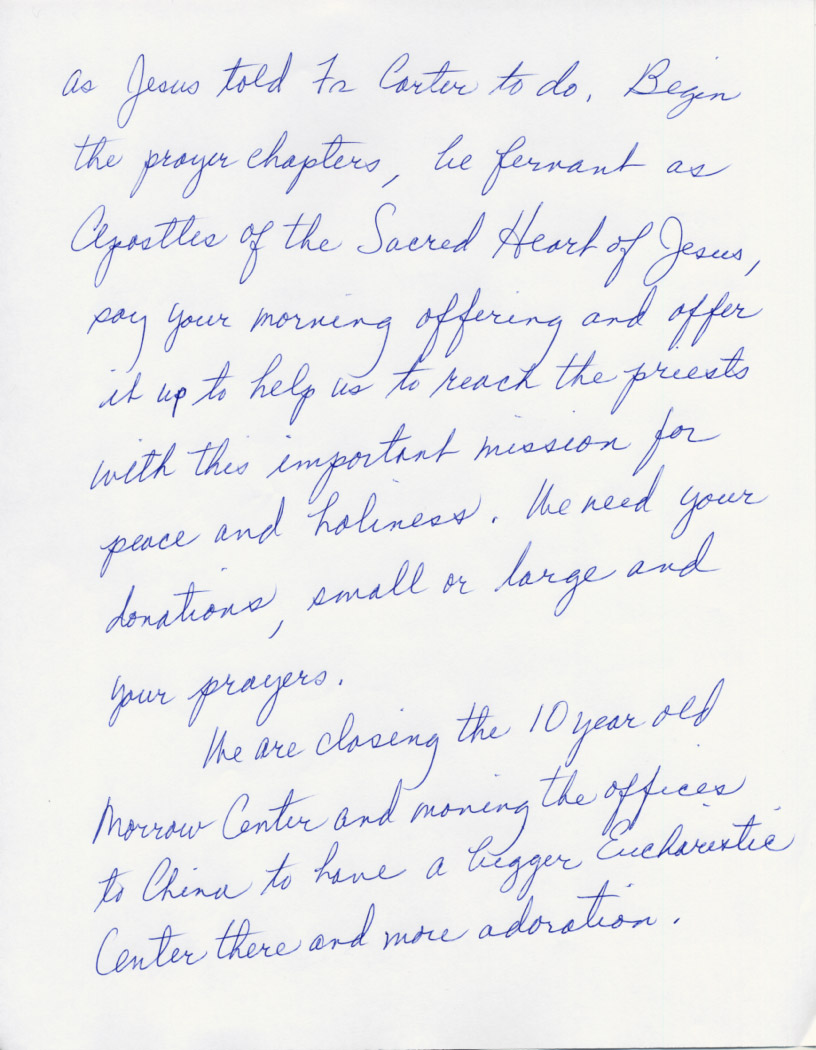 as Jesus told Fr Carter to do. Begin
the prayer chapters, be fervant as
Apostles of the Sacred Heart of Jesus,
say your morning offering and offer
it up to help us to reach the priests
with this important mission for
peace and holiness. We need your
donations, small or large and
your prayers.
We are closing the 10 year old
Morrow Center and moving the offices
to China to have a bigger Eucharistic
Center there and more adoration.